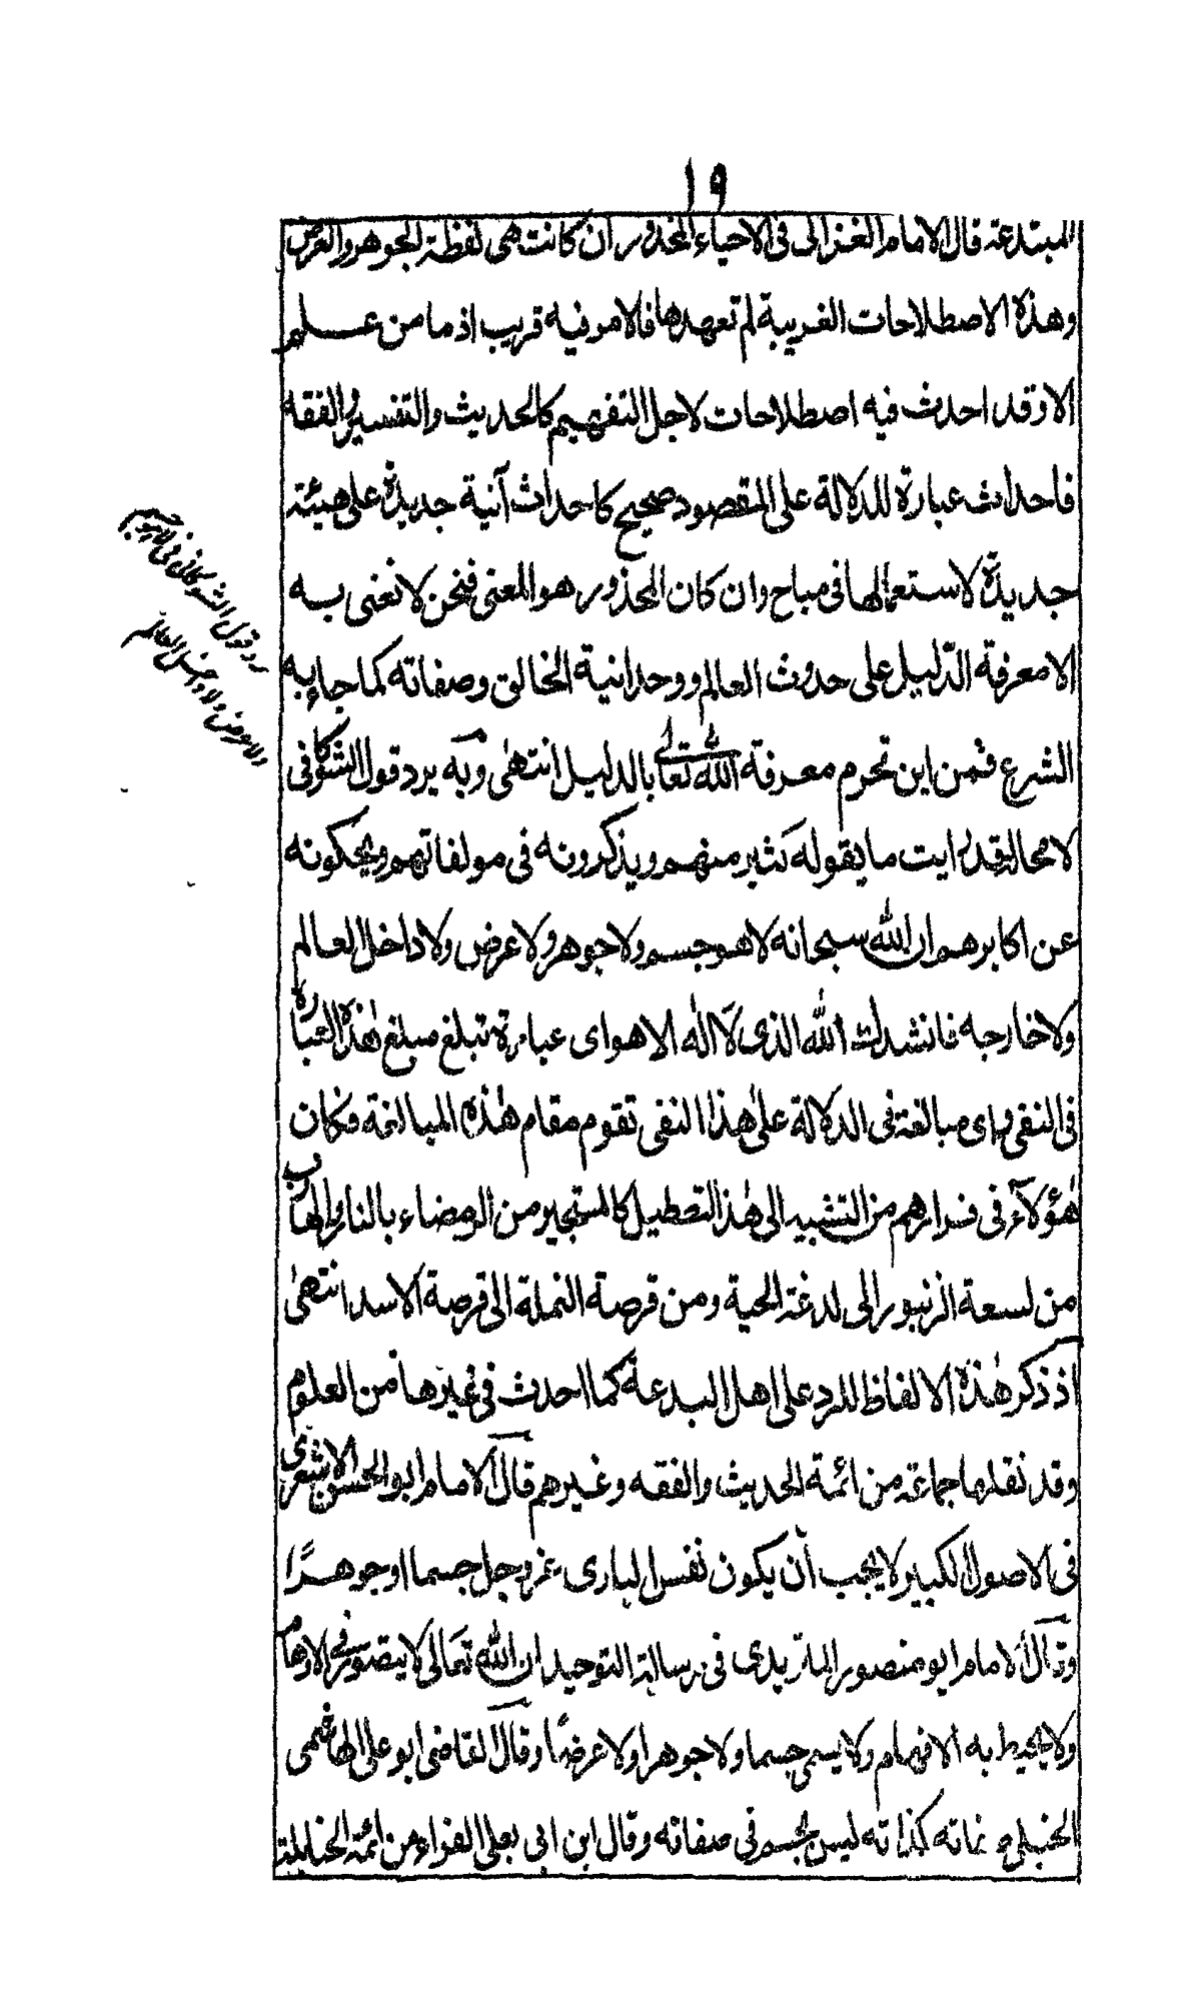 ١٩
المبتدعة قال الامام الغزالى فى الاحياء المحذور ان كانت هى لفظة الجوهر والعرض
وهذه الاصطلاحات الغريبة لم تعهدها فالامر فيه قريب اذ ما من علم
الا وقد احدث فيه اصطلاحات لاجل التفهيم كالحديث والتفسير والفقه
فاحداث عبارة للدلالة على المقصود صحيح كاحداث آنية جديدة على هيئة
جديدة لاستعمالها فى مباح وان كان المحذور هو المعنى فنحن لا نعنى به
الا معرفة الدّليل على حدوث العالم ووحدانية الخالق وصفاته كما جاء به
الشرع فمن اين تحرم معرفة الله تعالى بالدليل انتهى وبه يرد قول الشوكانى
لا محالة قد رايت ما يقوله كثير منهم ويذكرونه فى مولفاتهم ويحكونه
عن اكابرهم ان الله سبحانه لا هو جسم ولا جوهر ولا عرض ولا داخل العالم
ولا خارجه فانشدك الله الذى لا اله الا هو اى عبارة تبلغ مبلغ هذه العبارة
فى النفى واى مبالغة فى الدلالة على هذا النفى تقوم مقام هذه المبالغة فكان
هؤلاء فى فرارهم من التشبيه الى هذا التعطيل كالمستجير من الرمضاء بالنار والهارب
من لسعة الزنبور الى لدغة الحية ومن قرصة النملة الى قرصة الاسد انتهى
اذ ذكر هذه الالفاظ للرد على اهل البدعة كما احدث فى غيرها من العلوم
وقد نقلها جماعة من ائمة الحديث والفقه وغيرهم قال الامام ابو الحسن الاشعرى
فى الاصول الكبير لا يجب أن يكون نفس البارى عز وجل جسما او جوهرًا
وقال الامام ابو منصور الماتريدى فى رسالة التوحيد ان الله تعالى لا يتصور فى الاوهام
ولا يحيط به الافهام ولا يسمى جسما ولا جوهرا ولا عرضًا وقال القاضى ابو على الهاشمى
الحنبلى كذاته ليس بجسم فى صفاته وقال ابن ابى يعلى الفراء من ائمة الحنابلة
رد قول الشوكانى فى لا جسم
ولا عرض ولا داخل العالم